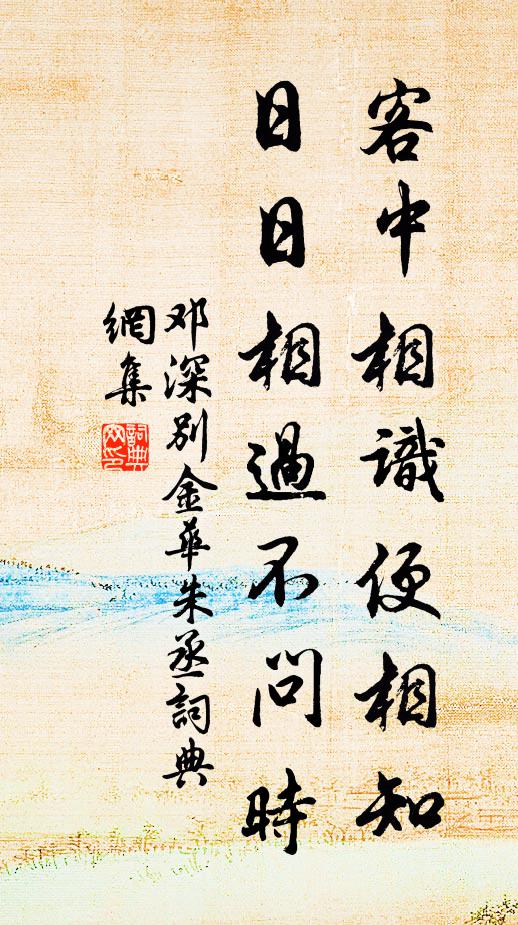 客中相識便相知
日日相過不問時
邓深別金華朱丞詞典
網集
詞典